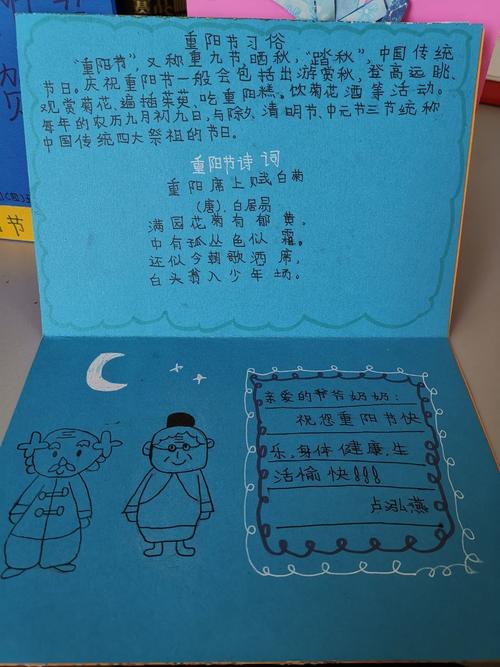 重阳节习俗
"重阳节",又称重九节,晒秋,"踏秋",中国传统
节日。庆祝重阳节一般会包括出游赏秋,登高远眺、
观赏菊花、遍插茱萸、吃重阳糕。饮菊花酒等活动。
每年的农历九月初九日,与除夕、清明节、中元节三节统称
中国传统四大祭祖的节日。
重阳节诗词
重阳席上赋白菊
(唐).白居易
满园花菊有郁黄,
中有孤丛色似霜。
还似今朝歌酒席,
白头翁入少年场。
亲爱的爷爷奶奶:
祝您重阳节快
乐,身体健康,生
活愉快!!!
卢泓燕
节